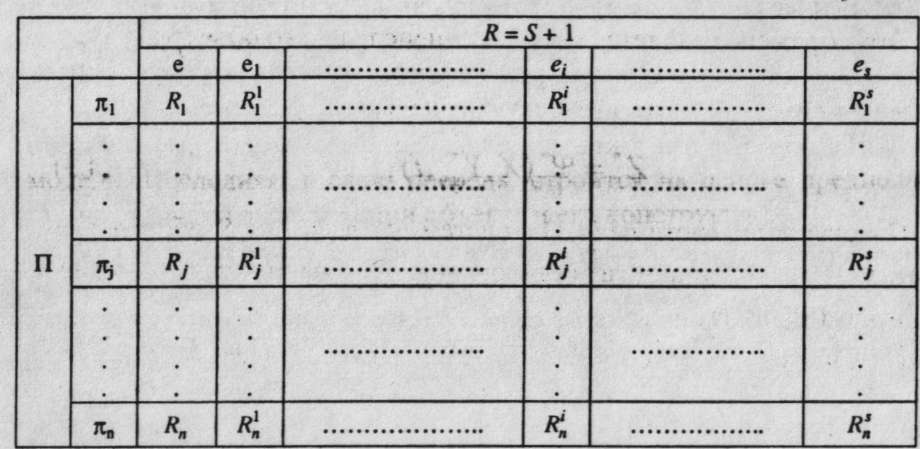 R = S + 1
e e₁ ..................... e_i ................. e_s
π₁ R₁ R₁¹ ..................... R₁ⁱ ................. R₁ˢ
. . . . .
. . . ..................... . ................. .
. . . . .
Π π_j R_j R_j¹ ..................... R_jⁱ ................. R_jˢ
. . . . . .
. . . . ..................... . ................. .
. . . . . .
π_n R_n R_n¹ ..................... R_nⁱ ................. R_nˢ